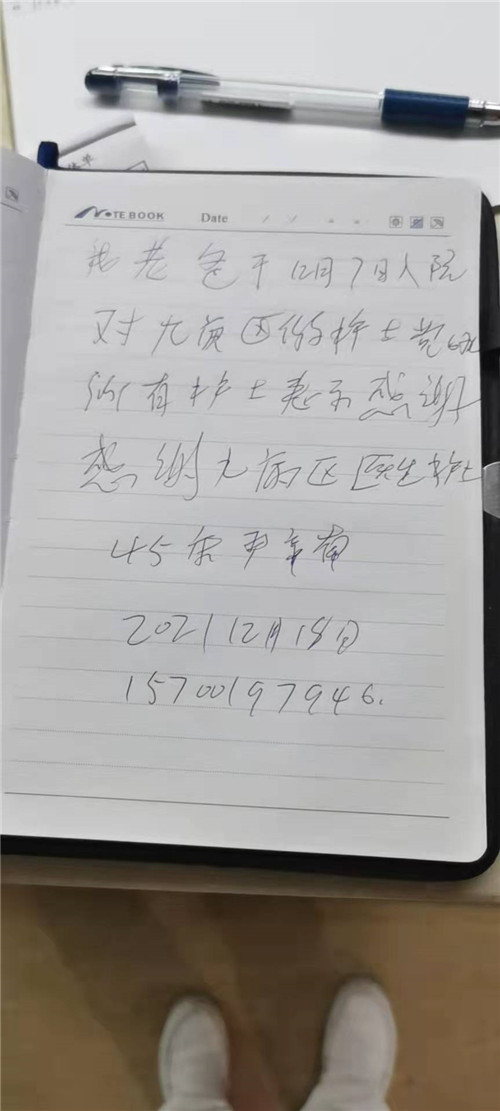 NOTEBOOK Date / /
我老爸于12月7日入院
对九病区的护士
所有护士表示感谢
感谢九病区医生护士
45床
2021 12月18日
15700197946.